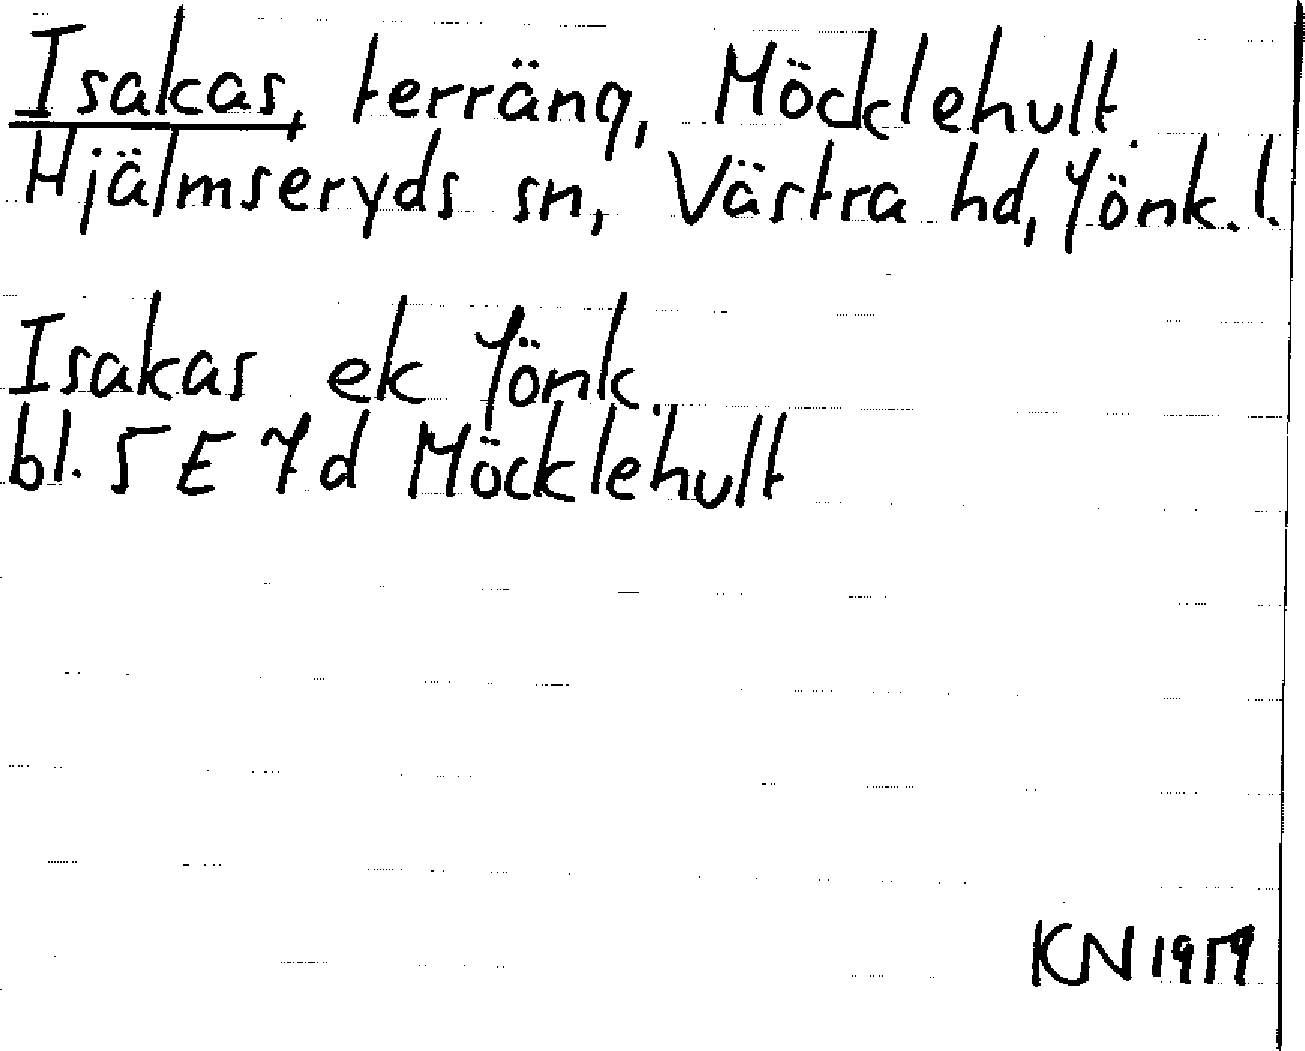 Isakas, terräng, Möcklehult
Hjälmseryds sn, Västra hd, Jönk. l.
Isakas ek Jönk.
bl. 5 E 7d Möcklehult
KN 1959